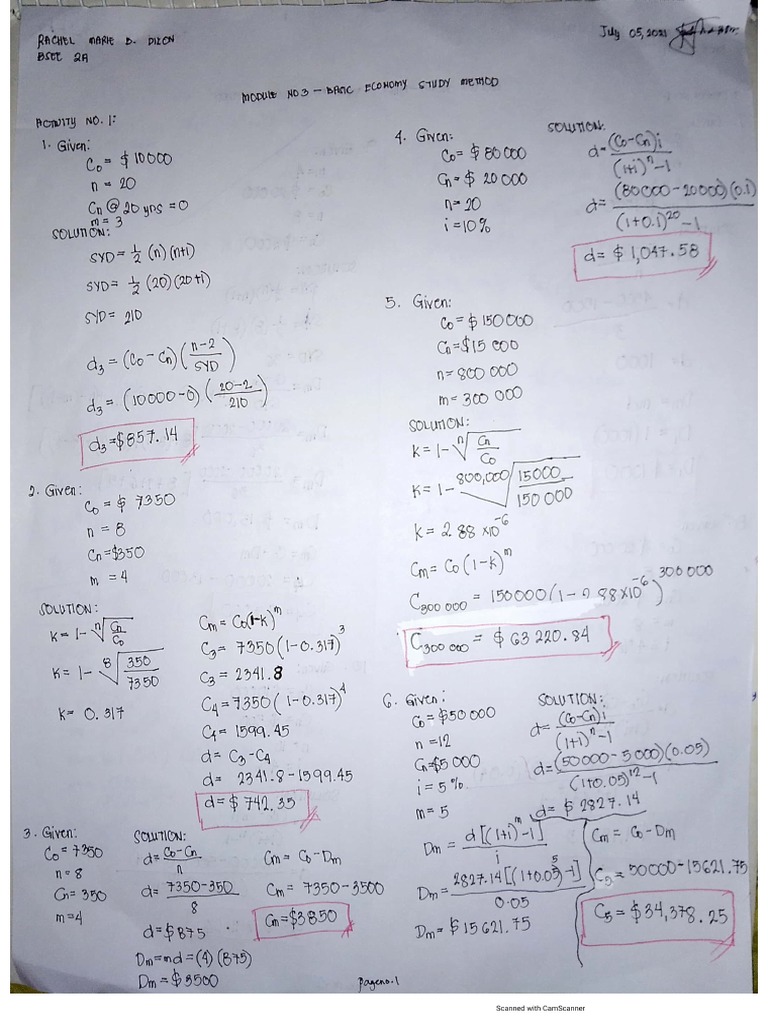 RACHEL MARIE B. DIZON
BSEE 2A
July 05, 2021
MODULE NO 3 – BASIC ECONOMY STUDY METHOD
ACTIVITY NO. 1:
1. Given:
C₀ = $ 10000
n = 20
Cn @ 20 yrs = 0
m = 3
SOLUTION:
SYD = ½ (n)(n+1)
SYD = ½ (20)(20+1)
SYD = 210
d₃ = (C₀ – Cn)((n–2)/SYD)
d₃ = (10000–0)((20–2)/210)
d₃ = $857.14
2. Given:
C₀ = $ 7350
n = 8
Cn = $350
m = 4
SOLUTION:
k = 1 – ⁿ√(Cn/C₀)
k = 1 – ⁸√(350/7350)
k = 0.317
Cm = C₀(1-k)ᵐ
C₃ = 7350(1–0.317)³
C₃ = 2341.8
C₄ = 7350(1–0.317)⁴
C₄ = 1599.45
d = C₃ – C₄
d = 2341.8 – 1599.45
d = $ 742.35
3. Given:
C₀ = 7350
n = 8
Cn = 350
m = 4
SOLUTION:
d = (C₀ – Cn)/n
d = (7350–350)/8
d = $ 875
Dm = md = (4)(875)
Dm = $ 3500
Cm = C₀ – Dm
Cm = 7350 – 3500
Cm = $3850
4. Given:
C₀ = $ 80 000
Cn = $ 20 000
n = 20
i = 10%
SOLUTION:
d = (C₀–Cn)i/((1+i)ⁿ –1)
d = (80000–20000)(0.1)/((1+0.1)²⁰ –1)
d = $ 1,047.58
5. Given:
C₀ = $ 150 000
Cn = $15 000
n = 800 000
m = 300 000
SOLUTION:
k = 1 – ⁿ√(Cn/C₀)
k = 1 – ⁸⁰⁰,⁰⁰⁰√(15000/150 000)
k = 2.88 x10⁻⁶
Cm = C₀(1–k)ᵐ
C₃₀₀ ₀₀₀ = 150000(1–2.88x10⁻⁶)³⁰⁰ ⁰⁰⁰
C₃₀₀ ₀₀₀ = $ 63 220.84
6. Given:
C₀ = $50 000
n = 12
Cn = $5 000
i = 5 %
m = 5
SOLUTION:
d = (C₀–Cn)i/((1+i)ⁿ –1)
d = (50000–5000)(0.05)/((1+0.05)¹² –1)
d = $ 2827.14
Dm = d[(1+i)ᵐ –1]/i
Dm = 2827.14[(1+0.05)⁵–1]/0.05
Dm = $ 15621.75
Cm = C₀ – Dm
C₅ = 50000–15621.75
C₅ = $34,378.25
page no. 1
Scanned with CamScanner